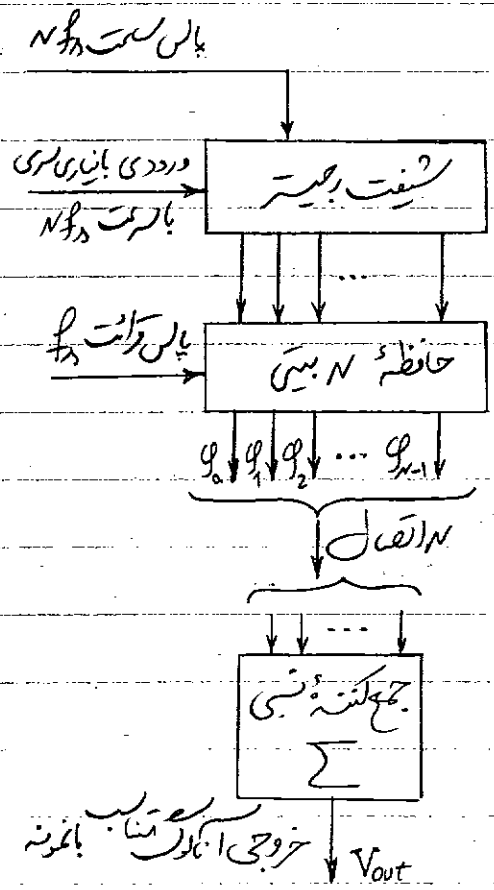 پالس ساعت Nfₛ
ورودی باینری سری
با سرعت Nfₛ
شیفت رجیستر
...
پالس قرائت fₛ
حافظهٔ N بیتی
φ₀ φ₁ φ₂ ... φ_N-1
N اتصال
...
جمع کنندهٔ نسبی
Σ
خروجی آنالوگ متناسب با نمونه
Vout